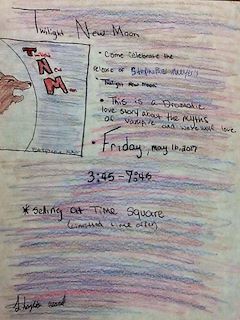 Twilight New Moon
Twilight
New
Moon
• Come celebrate the
release of Stephenie Meyer's
"Twilight New Moon"
• This is a Dramatic
love story about the myths
of vampire and werewolf love.
• Friday, may 16. 2017
3:45-7:45
*selling at Time Square
(limited time offer)